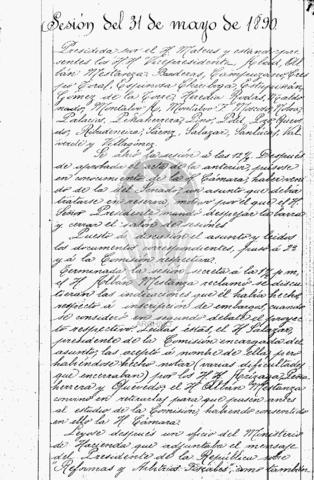 Sesión del 31 de mayo de 1890
Presidida por el H. Mateus y estando pre-
sentes los H.H. Vicepresidente, Albán
Mestanza, Campuzano, Cres-
po Toral, Espinosa, Chiriboga,
Gómez de la Torre,
Montalvo A., Montalvo F., Moscoso,
Palacios, Peñaherrera, Pino, Pólit,
Ribadeneira, Sáenz, Salazar, Val-
verde y Villagómez.
Se abrió la sesión á las 12¼. Después
de aprobada el acta de la anterior, púsose
en conocimiento de la H. Cámara, haber veni-
do de la del Senado, un asunto que debía
tratarse en reserva, motivo por el que el H.
Señor Presidente mandó despejar la barra
y cerrar el salón de sesiones.
Puesto á discusión el asunto y leídos
los documentos correspondientes, pasó á 2ª
y á la Comisión respectiva.
Terminada la sesión secreta á la 1½ p.m.
el H. Albán Mestanza reclamó se discu-
tieran las indicaciones que él había hecho
respecto á inscripción de embargos, cuando
se consideró en segundo debate el proyec-
to respectivo. Leídas éstas, el H. Salazar,
presidente de la Comisión encargada del
asunto, las aceptó á nombre de ella; pero
habiéndose hecho notar varias dificultades
que encerraban, por los H.H. Arízaga, Peña-
herrera y Quevedo, el H. Albán Mestanza
convino en retirarlas para que pasen antes
al estudio de la Comisión, habiendo consentido
en ello la H. Cámara.
Leyóse después un oficio del Ministerio
de Hacienda que adjuntaba el mensaje
del Presidente de la República sobre
"Reformas y Arbitrios Fiscales", como también